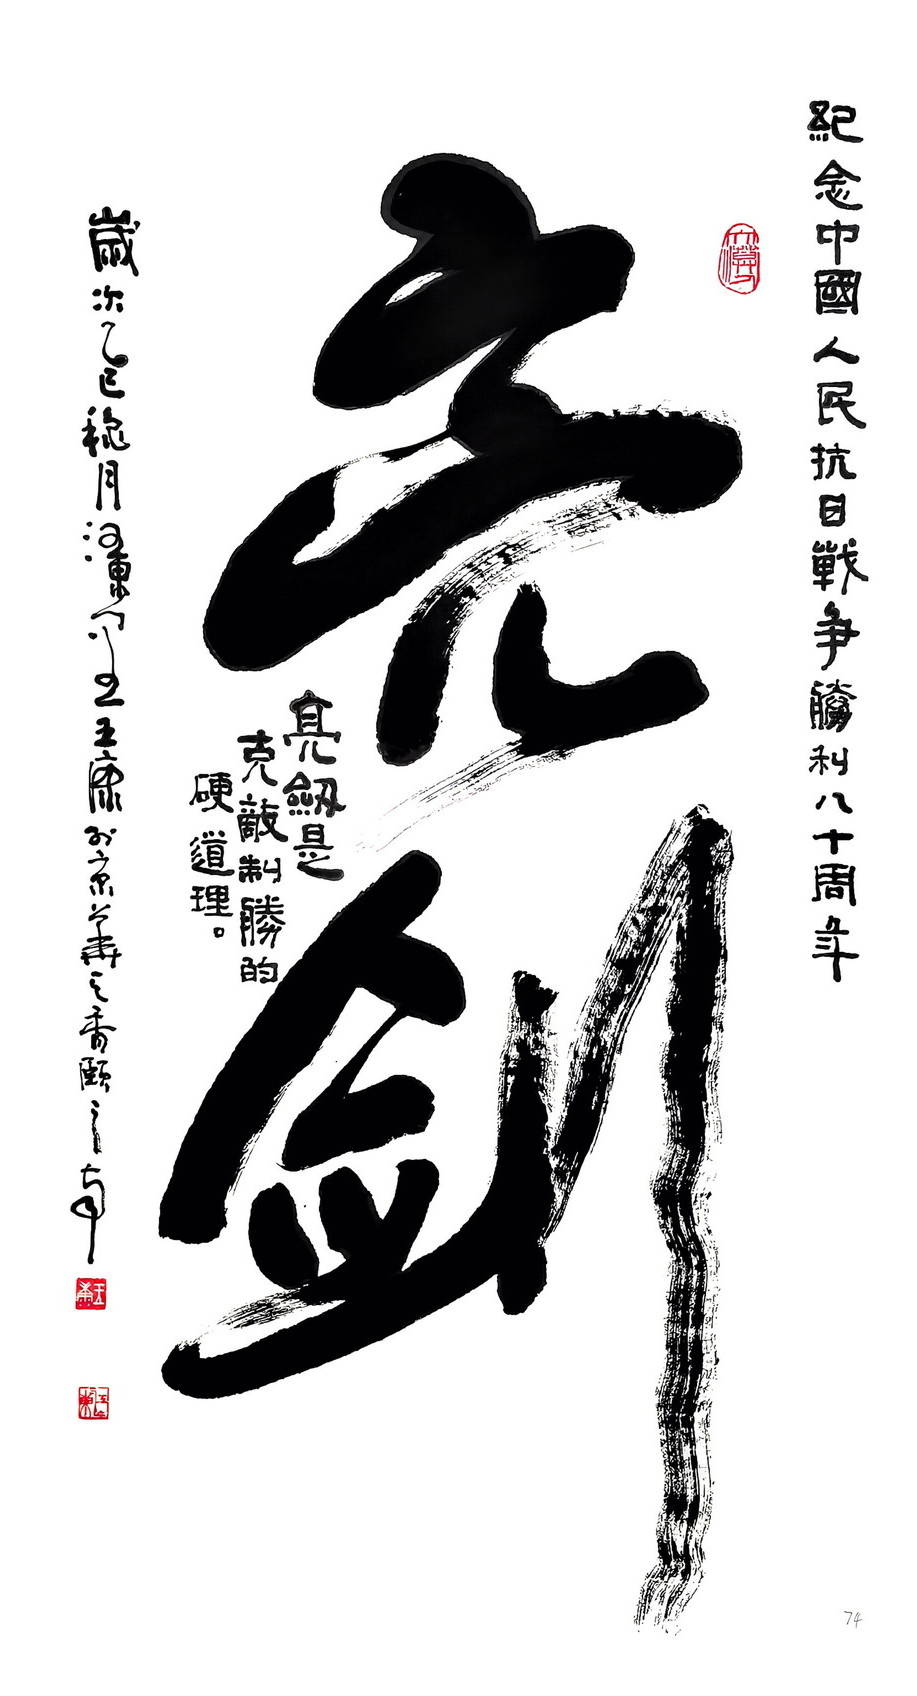 紀念中國人民抗日戰争勝利八十周年
亮剑
亮劔是
克敵制勝的
硬道理。
歲次乙巳穐月河東
王康於京華之香頤之
74